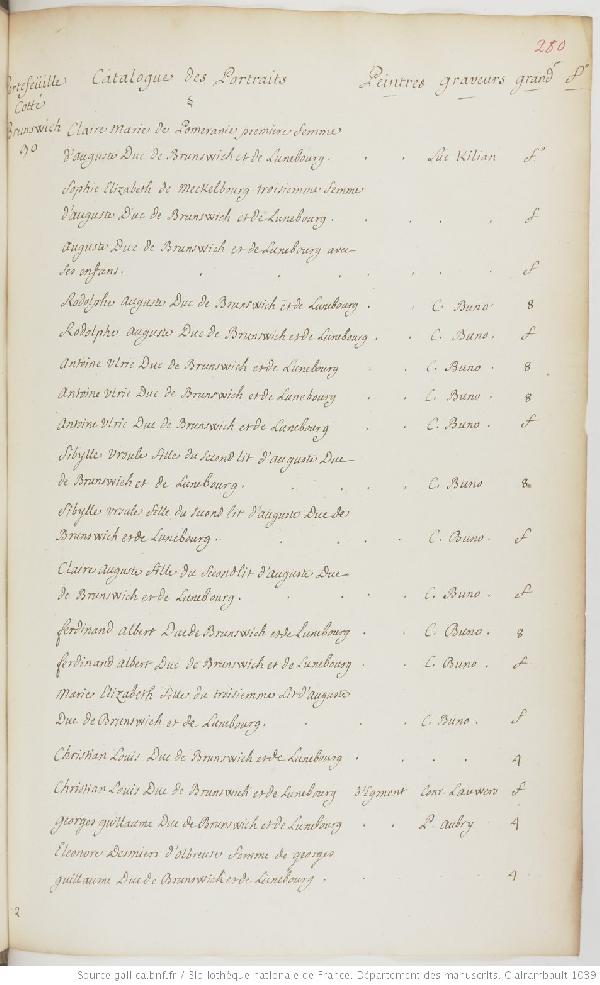 280
Portefeüille Catalogue des Portraits Peintres graveurs grandr fo
Cotté
Brunswich
90
Claire Marie de Pomeranie premiere femme
d'auguste Duc de Brunswich et de Lunebourg. Luc Kilian fo
Sophie Elizabeth de Meckelbourg troisiemme femme
d'auguste Duc de Brunswich et de Lunebourg. f
Auguste Duc de Brunswich et de Lunebourg avec
ses enfans. f
Rodolphe Auguste Duc de Brunswich et de Lunebourg. C. Buno 8
Rodolphe Auguste Duc de Brunswich et de Lunebourg. C. Buno. f
Antoine Ulric Duc de Brunswich et de Lunebourg C. Buno. 8
Antoine Ulric Duc de Brunswich et de Lunebourg C. Buno. 8
Antoine Ulric Duc de Brunswich et de Lunebourg C. Buno. f
Sibylle Ursule fille du second lit d'auguste Duc
de Brunswich et de Lunebourg. C. Buno 8
Sibylle Ursule fille du second lit d'auguste Duc de
Brunswich et de Lunebourg. C. Buno. f
Claire Auguste fille du second lit d'auguste Duc
de Brunswich et de Lunebourg. C. Buno. f
ferdinand Albert Duc de Brunswich et de Lunebourg. C. Buno. 8
ferdinand Albert Duc de Brunswich et de Lunebourg. C. Buno. f
Marie Elizabeth fille du troisiemme lit d'auguste
Duc de Brunswich et de Lunebourg. C. Buno. f
Christian Louis Duc de Brunswich et de Lunebourg. 4
Christian Louis Duc de Brunswich et de Lunebourg d'Egmont Conr. Lauwers f
Georges guillaume Duc de Brunswich et de Lunebourg P. Aubry 4
Eleonore Desmiers d'olbreuse femme de georges
guillaume Duc de Brunswich et de Lunebourg. 4
2
Source gallica.bnf.fr / Bibliothèque nationale de France. Département des manuscrits. Clairambault 1039